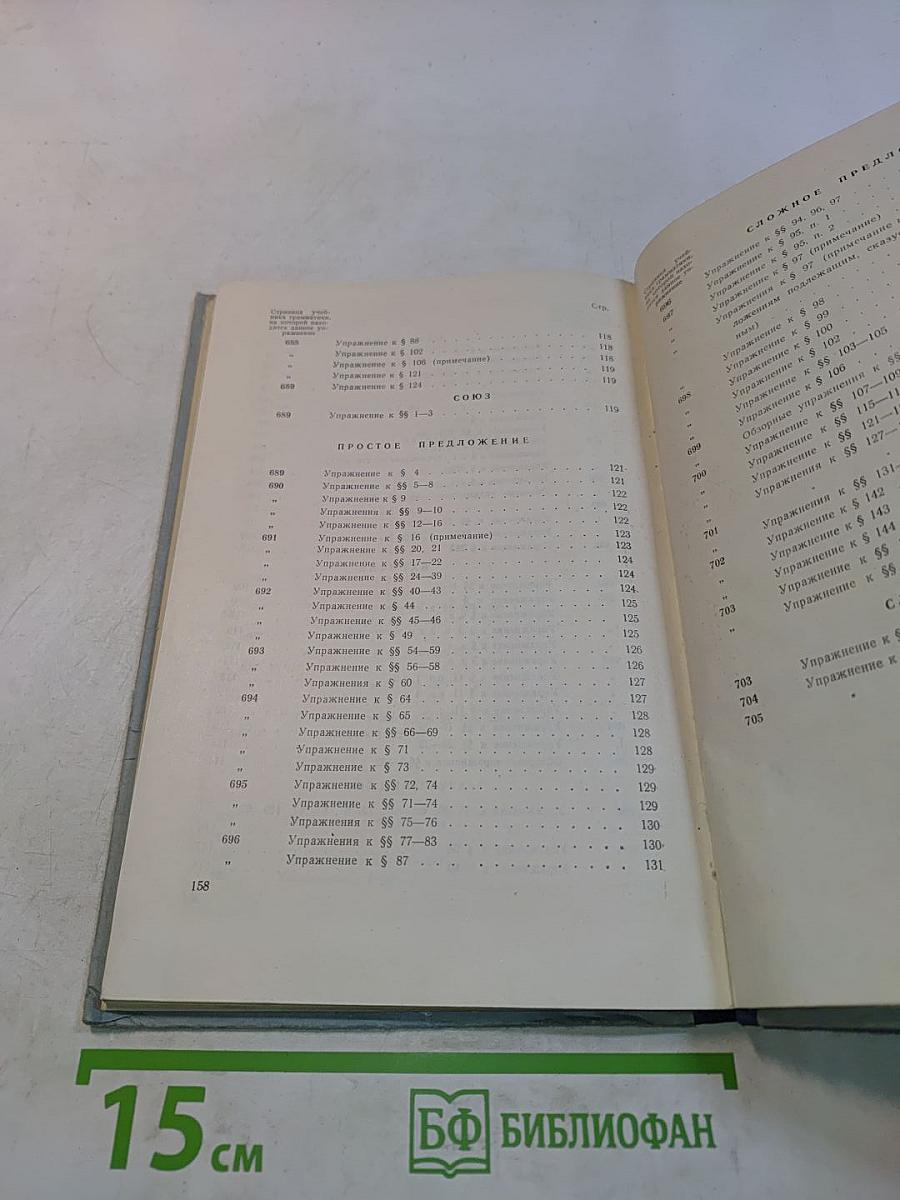 Страница учеб-
ника грамматики,
на которой нахо-
дится данное уп-
ражнение
Стр.
688 Упражнение к § 88 118
„ Упражнение к § 102 118
„ Упражнение к § 106 (примечание) 118
„ Упражнение к § 121 119
689 Упражнение к § 124 119
СОЮЗ
689 Упражнение к §§ 1—3 119
ПРОСТОЕ ПРЕДЛОЖЕНИЕ
689 Упражнение к § 4 121
690 Упражнение к §§ 5—8 121
„ Упражнение к § 9 122
„ Упражнения к §§ 9—10 122
„ Упражнение к §§ 12—16 122
691 Упражнение к § 16 (примечание) 123
„ Упражнение к §§ 20, 21 123
„ Упражнение к §§ 17—22 124
„ Упражнение к §§ 24—39 124
692 Упражнение к §§ 40—43 124
„ Упражнение к § 44 125
„ Упражнение к §§ 45—46 125
„ Упражнение к § 49 125
693 Упражнение к §§ 54—59 126
„ Упражнение к §§ 56—58 126
„ Упражнения к § 60 127
694 Упражнение к § 64 127
„ Упражнение к § 65 128
„ Упражнение к §§ 66—69 128
„ Упражнение к § 71 128
„ Упражнение к § 73 129
695 Упражнение к §§ 72, 74 129
„ Упражнение к §§ 71—74 129
„ Упражнения к §§ 75—76 130
696 Упражнения к §§ 77—83 130
„ Упражнение к § 87 131
158
СЛОЖНОЕ
Упражнение к §§ 94, 96, 97
Упражнение к § 95, п. 1
Упражнение к § 95, п. 2
Упражнение к § 97 (примечание)
Упражнения к § 97 (примечание
ложениям подлежащим,
ным)
Упражнение к § 98
Упражнение к § 99
Упражнение к § 100
Упражнение к § 102
Упражнение к §§ 103—105
Упражнение к § 106
Обзорные упражнения к
Упражнение к §§ 107—109
Упражнение к §§
Упражнение к §§
Упражнения к §§
Упражнения к §§
Упражнение к § 142
Упражнение к § 143
Упражнение к § 144
Упражнение к §§
Упражнение к §§
Упражнение к
Упражнение к
696
697
698
699
700
701
702
703
703
704
705
15 см
БФ БИБЛИОФАН